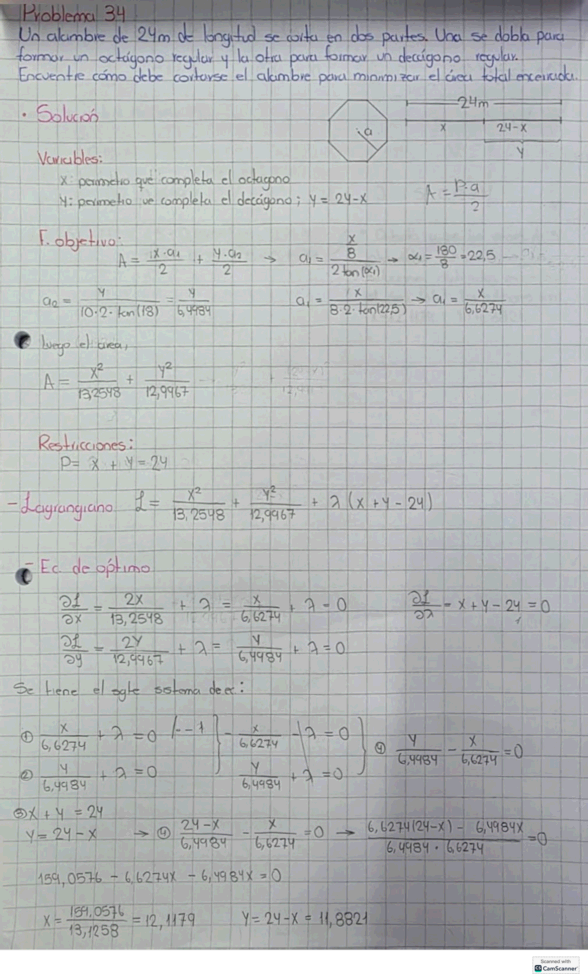 Problema 34
Un alambre de 24m de longitud se corta en dos partes. Una se dobla para
formar un octágono regular y la otra para formar un decágono regular.
Encuentre cómo debe cortarse el alambre para minimizar el área total encerrada.
• Solución
a
24m
x 24-x
y
Variables:
x: perímetro que completa el octagono
y: perímetro ue completa el decágono; y = 24-x
A = P·a / 2
F. objetivo:
A = x·a₁ / 2 + y·a₂ / 2 → a₁ = (x/8) / 2tan(α₁) → α₁ = 180/8 = 22,5
a₂ = y / 10·2·tan(18) = y / 6,4984
a₁ = x / 8·2·tan(22,5) → a₁ = x / 6,6274
luego el área,
A = x² / 13,2548 + y² / 12,9967
Restricciones:
P = x + y = 24
- Lagrangiano L = x² / 13,2548 + y² / 12,9967 + λ(x + y - 24)
- Ec de óptimo
∂L/∂x = 2x / 13,2548 + λ = x / 6,6274 + λ = 0
∂L/∂λ = x + y - 24 = 0
∂L/∂y = 2y / 12,9967 + λ = y / 6,4984 + λ = 0
Se tiene el sgte sistema de ec:
① x / 6,6274 + λ = 0 /·-1 } - x / 6,6274 - λ = 0
② y / 6,4984 + λ = 0 y / 6,4984 + λ = 0
④ y / 6,4984 - x / 6,6274 = 0
③ x + y = 24
y = 24 - x → ④ 24-x / 6,4984 - x / 6,6274 = 0 → 6,6274(24-x) - 6,4984x / 6,4984 · 6,6274 = 0
159,0576 - 6,6274x - 6,4984x = 0
x = 159,0576 / 13,1258 = 12,1179 y = 24-x = 11,8821
Scanned with
CS CamScanner